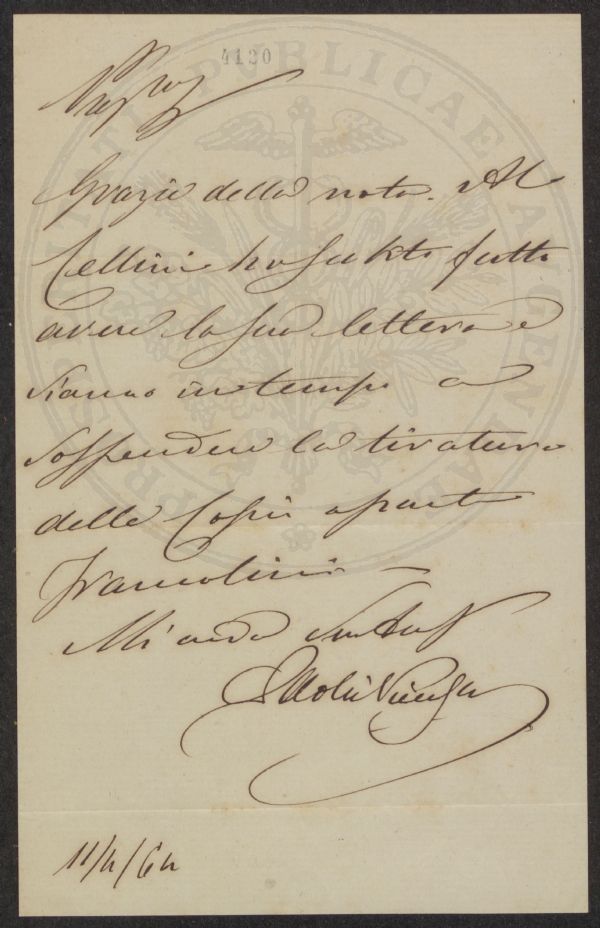 4120
Grazie della nota. Al
Cellini ho subito fatto
avere la sua lettera e
siamo in tempo a
sospendere la tiratura
delle Copie a parte
Francolini —
Mi creda
11/4/64